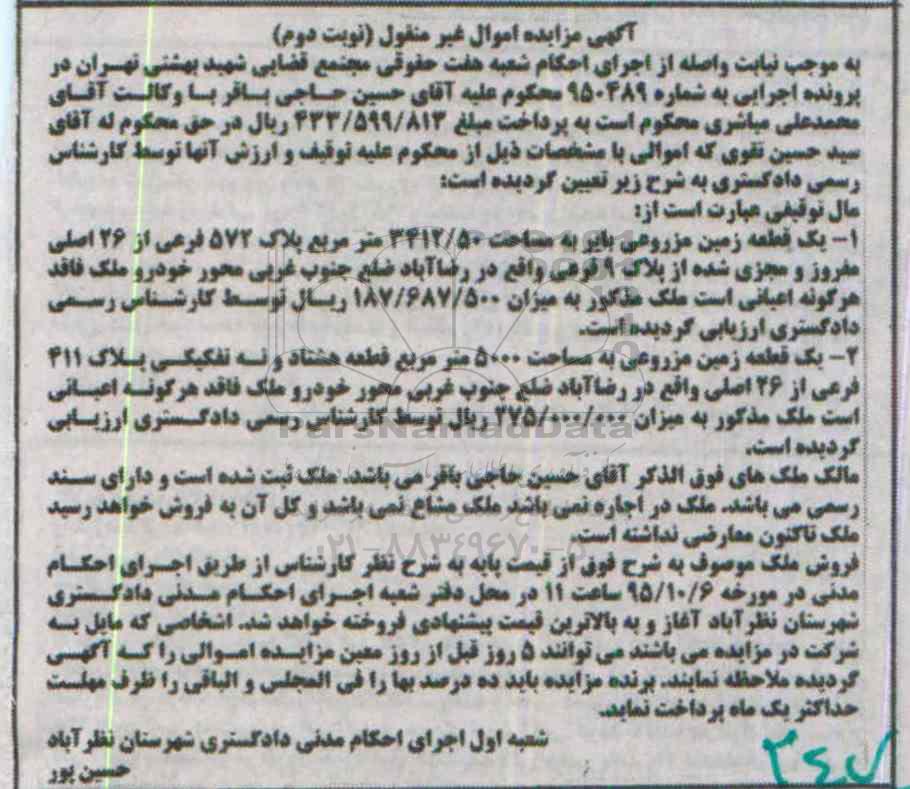 آگهی مزایده اموال غیر منقول (نوبت دوم)
به موجب نیابت واصله از اجرای احکام شعبه هفت حقوقی مجتمع قضایی شهید بهشتی تهران در
پرونده اجرایی به شماره ۹۵۰۴۸۹ محکوم علیه آقای حسین حاجی باقر با وکالت آقای
محمدعلی مباشری محکوم است به پرداخت مبلغ ۴۳۳/۵۹۹/۸۱۳ ریال در حق محکوم له آقای
سید حسین نقوی که اموالی با مشخصات ذیل از محکوم علیه توقیف و ارزش آنها توسط کارشناس
رسمی دادگستری به شرح زیر تعیین گردیده است:
مال توقیفی عبارت است از:
۱- یک قطعه زمین مزروعی بایر به مساحت ۳۴۱۲/۵۰ متر مربع پلاک ۵۷۲ فرعی از ۲۶ اصلی
مفروز و مجزی شده از پلاک ۹ فرعی واقع در رضاآباد ضلع جنوب غربی محور خودرو ملک فاقد
هرگونه اعیانی است ملک مذکور به میزان ۱۸۷/۶۸۷/۵۰۰ ریال توسط کارشناس رسمی
دادگستری ارزیابی گردیده است.
۲- یک قطعه زمین مزروعی به مساحت ۵۰۰۰ متر مربع قطعه هشتاد و نه تفکیکی پلاک ۴۱۱
فرعی از ۲۶ اصلی واقع در رضاآباد ضلع جنوب غربی محور خودرو ملک فاقد هرگونه اعیانی
است ملک مذکور به میزان ۲۷۵/۰۰۰/۰۰۰ ریال توسط کارشناس رسمی دادگستری ارزیابی
ParsNamadData
گردیده است.
مالک ملک های فوق الذکر آقای حسین حاجی باقر می باشد. ملک ثبت شده است و دارای سند
رسمی می باشد. ملک در اجاره نمی باشد ملک مشاع نمی باشد و کل آن به فروش خواهد رسید
ملک تاکنون معارضی نداشته است.
۰۲۱-۸۸۳۴۹۶۷۰-۵
فروش ملک موصوف به شرح فوق از قیمت پایه به شرح نظر کارشناس از طریق اجرای احکام
مدنی در مورخه ۹۵/۱۰/۶ ساعت ۱۱ در محل دفتر شعبه اجرای احکام مدنی دادگستری
شهرستان نظرآباد آغاز و به بالاترین قیمت پیشنهادی فروخته خواهد شد. اشخاصی که مایل به
شرکت در مزایده می باشند می توانند ۵ روز قبل از روز معین مزایده اموالی را که آگهی
گردیده ملاحظه نمایند. برنده مزایده باید ده درصد بها را فی المجلس و الباقی را ظرف مهلت
حداکثر یک ماه پرداخت نماید.
شعبه اول اجرای احکام مدنی دادگستری شهرستان نظرآباد
حسین پور